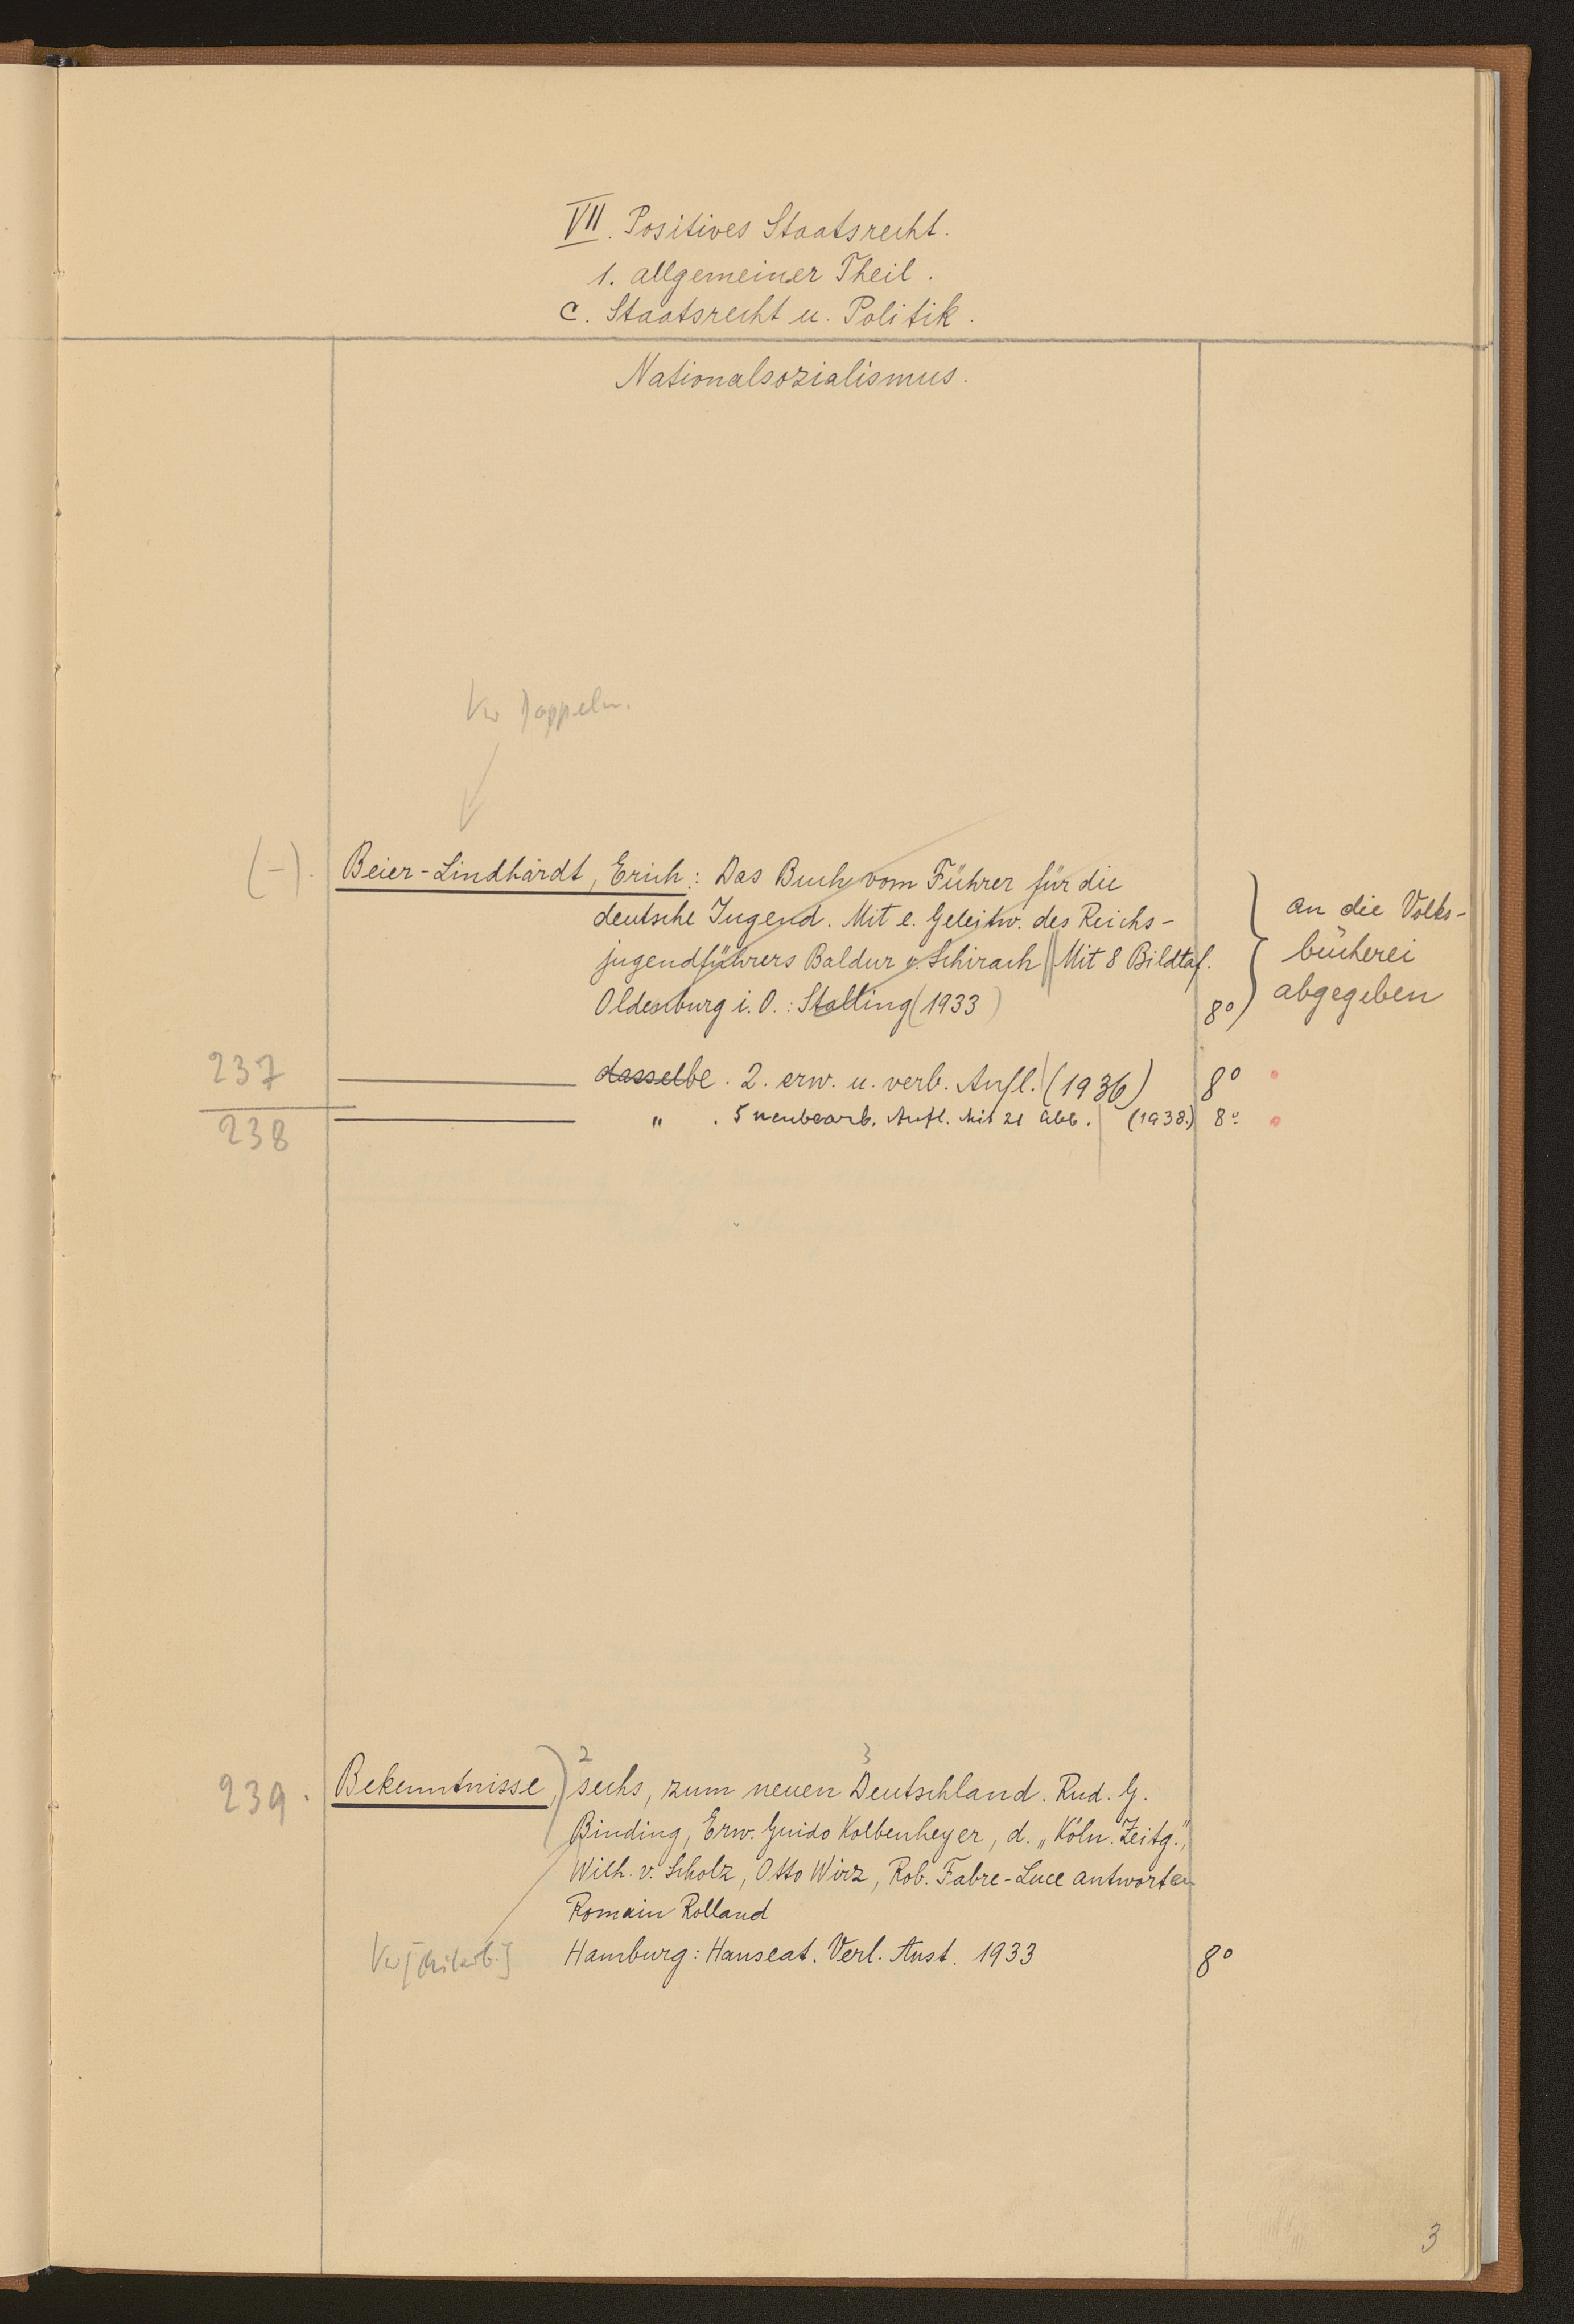 VII. Positives Staatsrecht.
1. allgemeiner Theil.
C. Staatsrecht u. Politik.
Nationalsozialismus.
Vw Doppeln.
(-). Beier-Lindhardt, Erich: Das Buch vom Führer für die
deutsche Jugend. Mit e. Geleitw. des Reichs-
jugendführers Baldur v. Schirach || Mit 8 Bildtaf.
Oldenburg i. O.: Stalling (1933) 8°
an die Volks-
bücherei
abgegeben
237 dasselbe. 2. erw. u. verb. Aufl. | (1936) 8°
238 " . 5 neubearb. Aufl. Mit 21 Abb. | (1938.) 8°
2 3
239. Bekenntnisse, sechs, zum neuen Deutschland. Rud. G.
Binding, Erw. Guido Kolbenheyer, d. „Köln. Zeitg.",
Wilh. v. Scholz, Otto Wirz, Rob. Fabre-Luce antworten
Romain Rolland
Vw Hamburg: Hanseat. Verl. Anst. 1933 8°
3